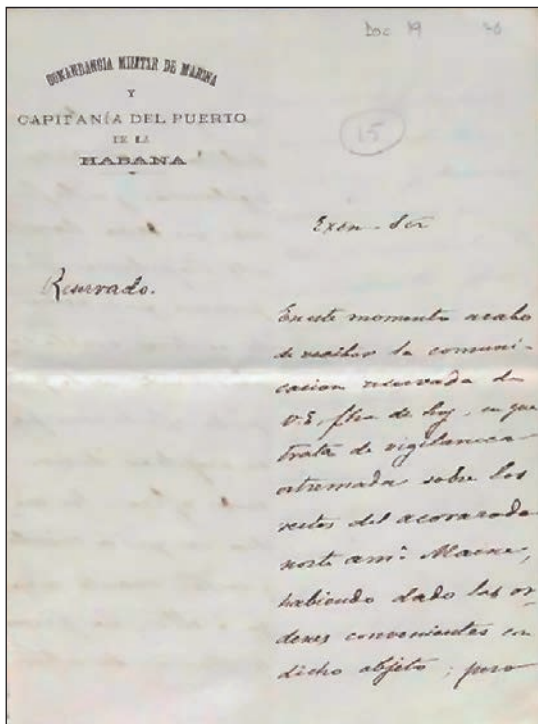 Doc 19
COMANDANCIA MILITAR DE MARINA
Y
CAPITANÍA DEL PUERTO
DE LA
HABANA
15
Excmo. Sor
Reservado.
En este momento acabo
de recibir la comuni-
cacion reservada de
V.E. fha de hoy, en que
trata de vigilancia
estremada sobre los
restos del acorazado
norte amº Maine,
habiendo dado las or-
denes convenientes con
dicho objeto; pero